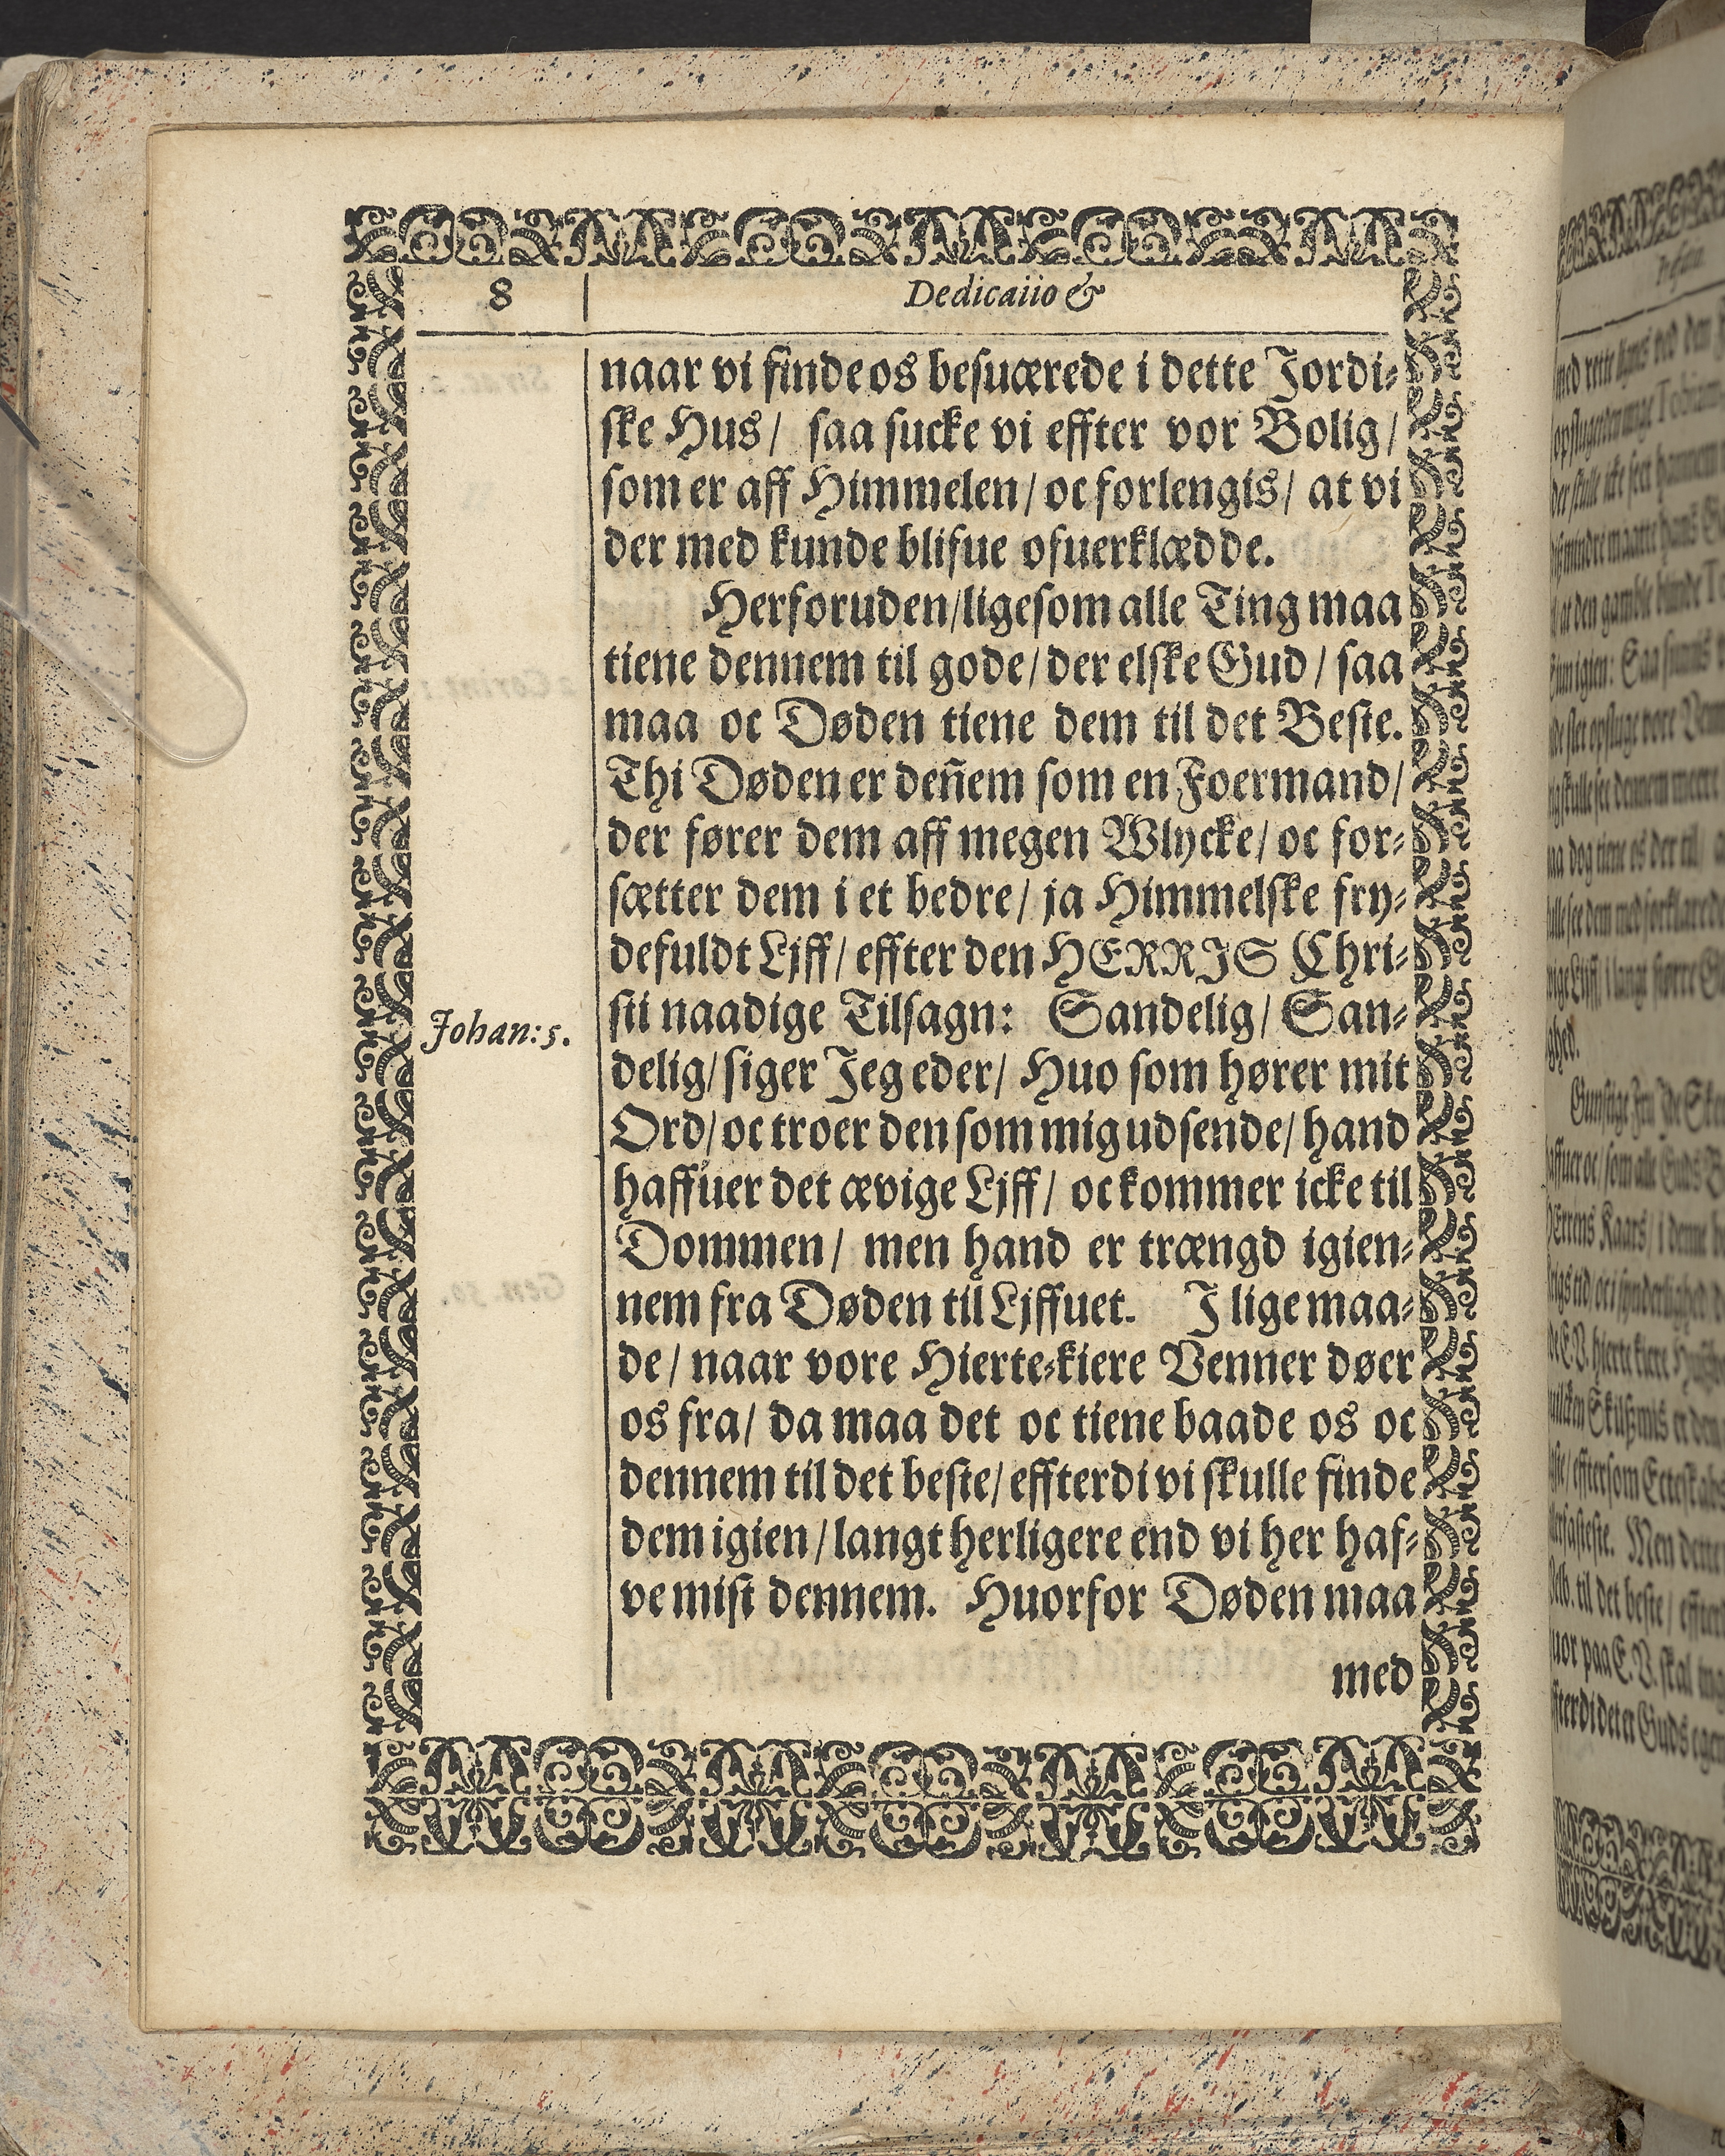 8
Dedicaiio &
naar vi finde os besuærede i dette Jordi⸗
ske Hus/ saa sucke vi effter vor Bolig/
som er aff Himmelen/ oc forlengis/ at vi
der med kunde blifue ofuerklædde.
Herforuden/ligesom alle Ting maa
tiene dennem til gode/ der elske Gud/ saa
maa oc Døden tiene dem til det Beste.
Thi Døden er deñem som en Foermand/
der fører dem aff megen Wlycke/ oc for⸗
sætter dem i et bedre/ ja Himmelske fry⸗
defuldt Ljff/ effter den HERRIS Chri⸗
sti naadige Tilsagn: Sandelig/ San⸗
Johan: 5.
delig/ siger Jeg eder/ Huo som hører mit
Ord/ oc troer den som mig udsende/ hand
haffuer det ævige Ljff/ oc kommer icke til
Dommen/ men hand er trængd igien⸗
nem fra Døden til Ljffuet. I lige maa⸗
de/ naar vore Hierte⸗kiere Venner døer
os fra/ da maa det oc tiene baade os oc
dennem til det beste/ effterdi vi skulle finde
dem igien/ langt herligere end vi her haf⸗
ve mist dennem. Huorfor Døden maa
med